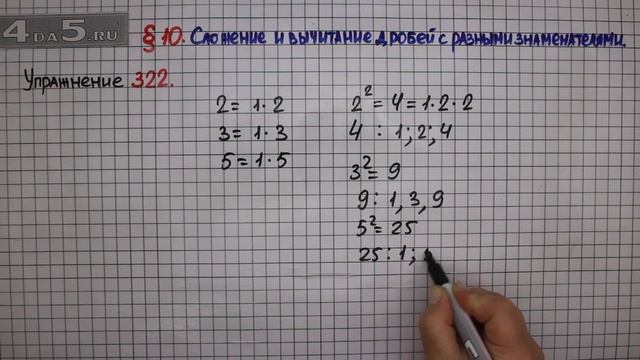 4DA5.RU
§ 10. Сложение и вычитание дробей с разными знаменателями.
Упражнение 322.
2 = 1 · 2
3 = 1 · 3
5 = 1 · 5
2² = 4 = 1 · 2 · 2
4 : 1; 2; 4
3² = 9
9 : 1, 3, 9
5² = 25
25 : 1;